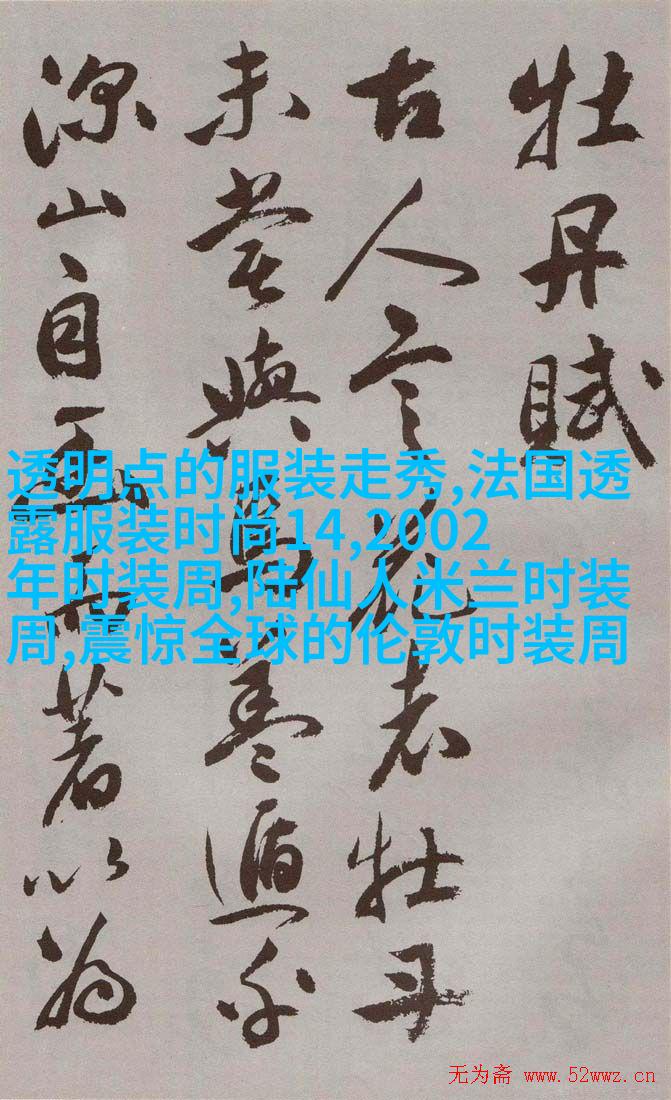 牡丹賦
古人言花者牡丹
未嘗與焉蓋遁乎
深山自幽而著以為
透明点的服装走秀,法国透
露服装时尚14,2002
年时装周,陆仙人米兰时装
周,震惊全球的伦敦时装周
无为斋 www.52wwz.cn